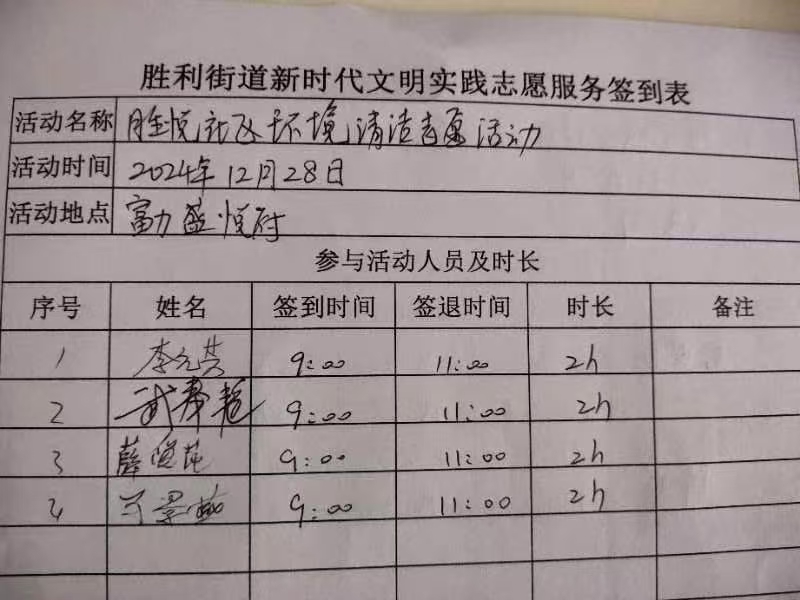 胜利街道新时代文明实践志愿服务签到表
活动名称 胜悦社区环境清洁志愿活动
活动时间 2024年12月28日
活动地点 富力盛悦府
参与活动人员及时长
序号 姓名 签到时间 签退时间 时长 备注
1 李元英 9:00 11:00 2h
2 武春艳 9:00 11:00 2h
3 薛 9:00 11:00 2h
4 9:00 11:00 2h